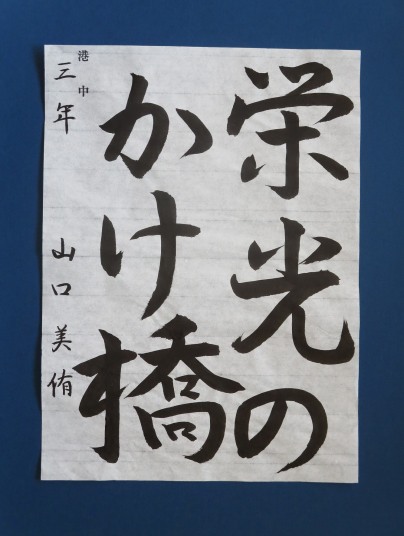 栄光の
かけ橋
港中
三年 山口美侑